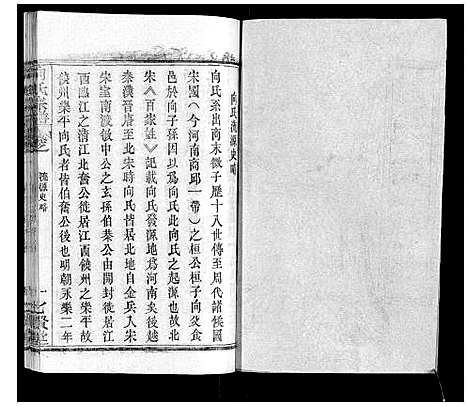 向氏流源史略
向氏系出商末微子歷十八世傳至周代諸侯國
宋國（今河南商邱一帶）之桓公桓子向父食
邑於向子孫因以為向氏此向氏之起源也故北
宋《百家姓》記載向氏發源地為河南矣後歷
秦漢晉唐至北宋時向氏皆居北地自金兵入宋
宋室南渡敏中公之玄孫伯奮公由開封徙居江
西臨江之清江北奮公徙居江西饒州之樂平故
饒州樂平向氏者皆伯奮公後也明朝永樂二年
流源史略